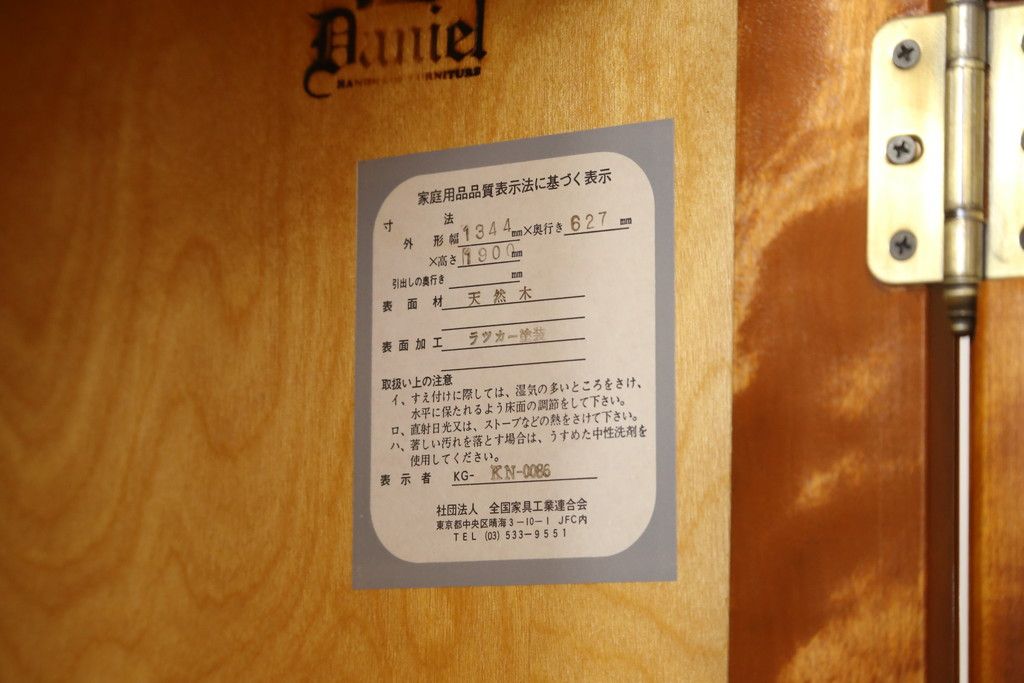 Daniel
家庭用品品質表示法に基づく表示
寸 法
外形幅 1344mm×奥行き 627mm
×高さ 1900mm
引出しの奥行き mm
表面材 天然木
表面加工 ラッカー塗装
取扱い上の注意
イ、すえ付けに際しては、湿気の多いところをさけ、
水平に保たれるよう床面の調節をして下さい。
ロ、直射日光又は、ストーブなどの熱をさけて下さい。
ハ、著しい汚れを落とす場合は、うすめた中性洗剤を
使用してください。
表示者 KG- KN-0086
社団法人 全国家具工業連合会
東京都中央区晴海3-10-1 JFC内
TEL (03) 533-9551